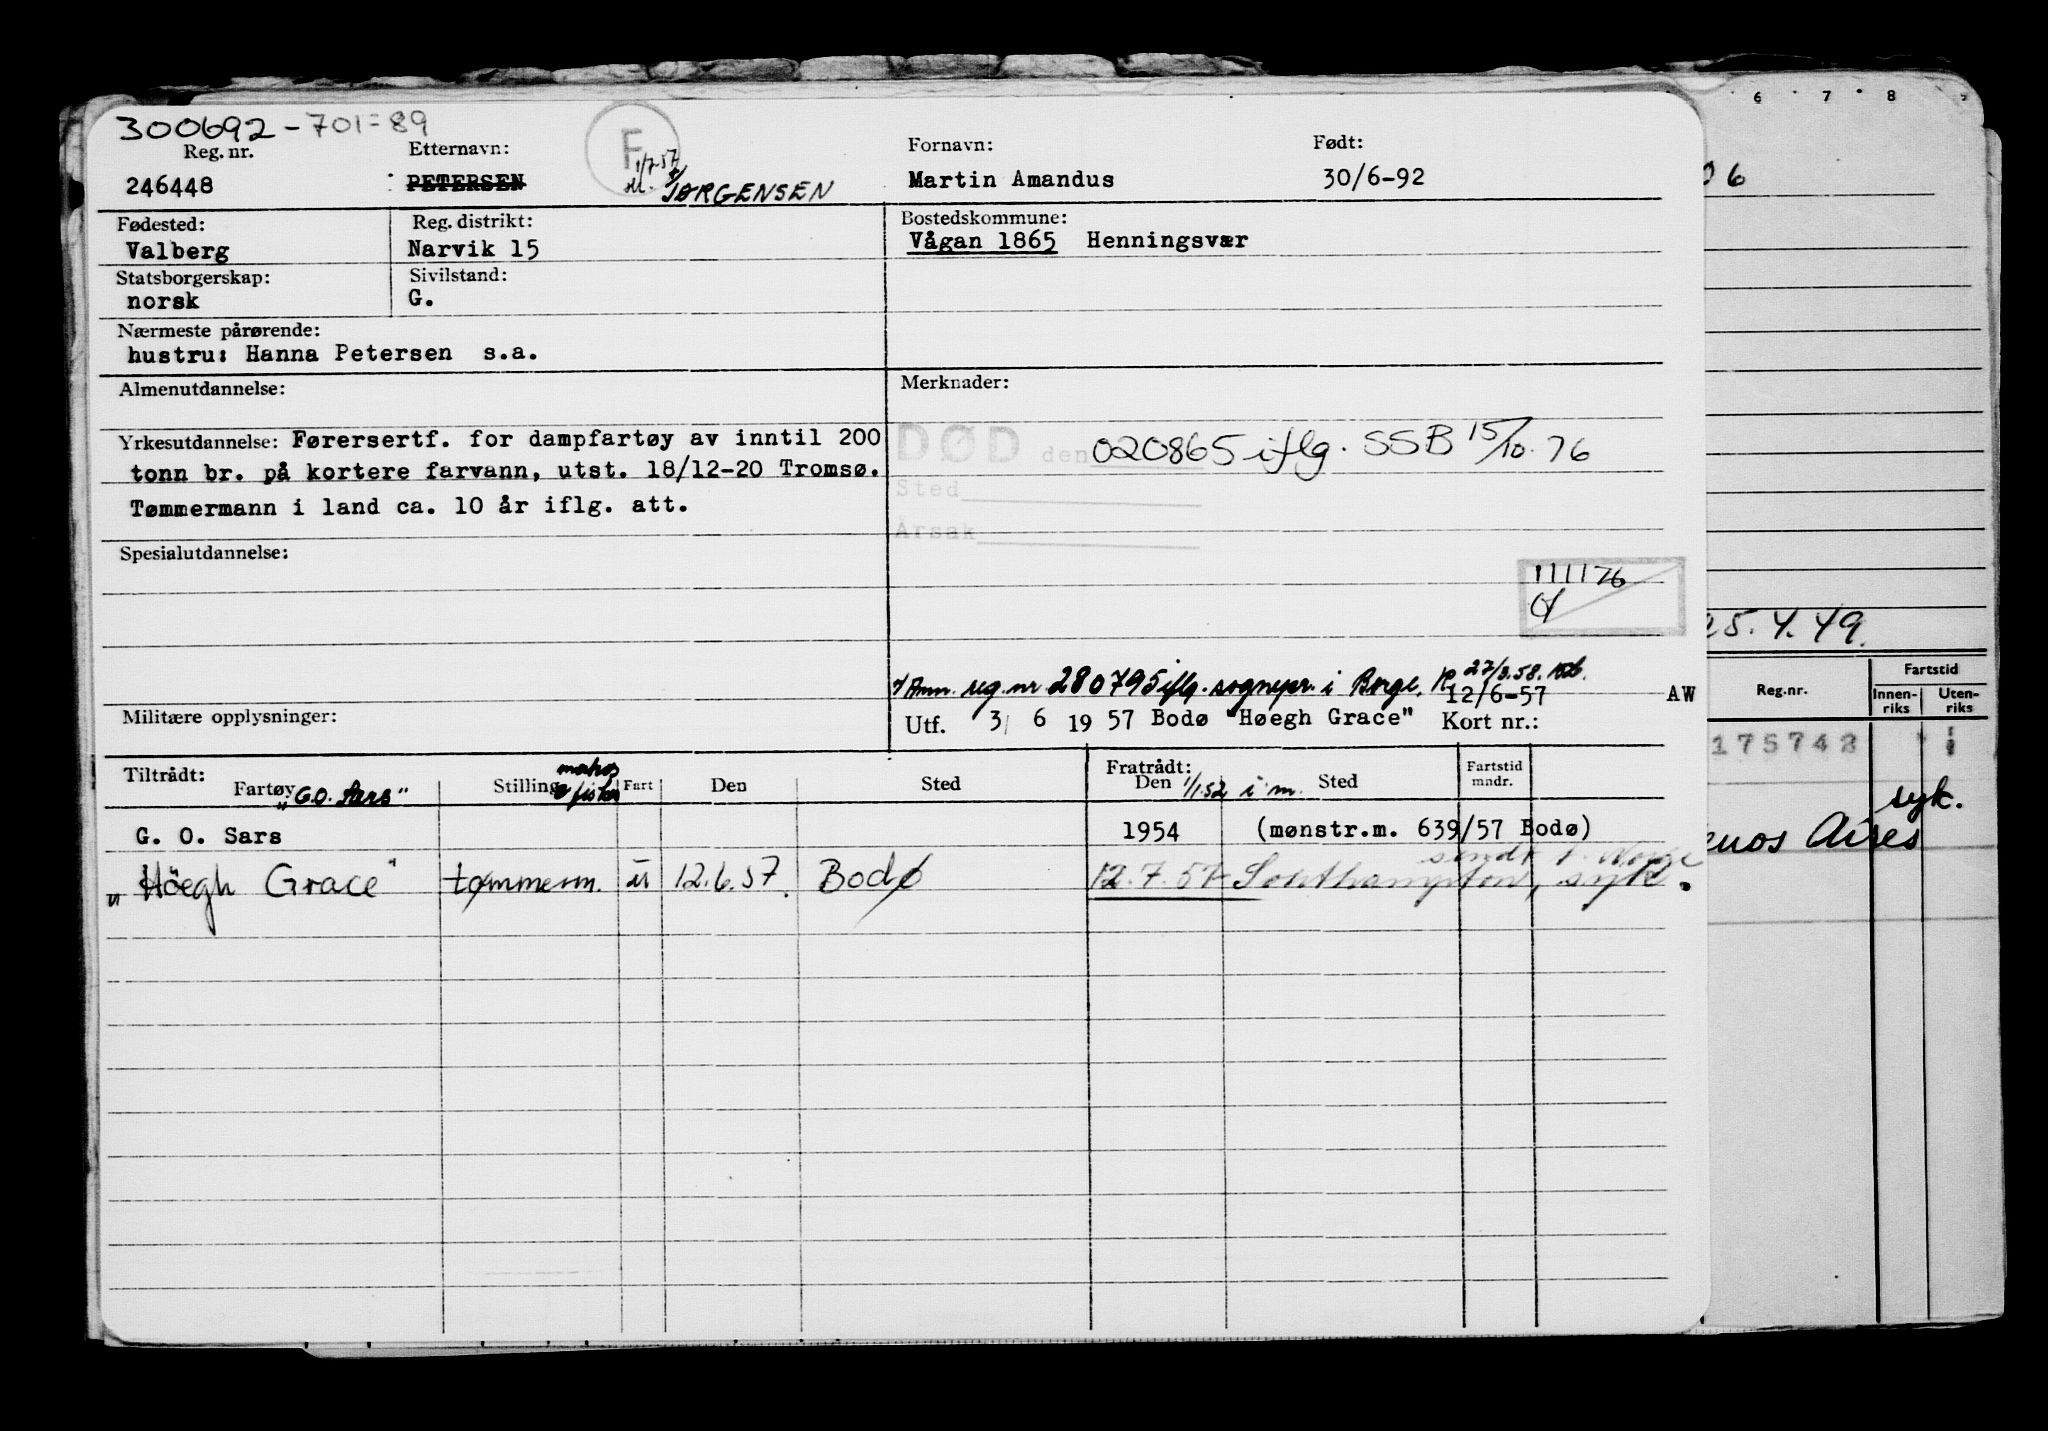 300692-701=89
Reg. nr. Etternavn: F Fornavn: Født:
246448 PETERSEN 1/7-57 JØRGENSEN Martin Amandus 30/6-92
Fødested: Reg. distrikt: Bostedskommune:
Valberg Narvik 15 Vågan 1865 Henningsvær
Statsborgerskap: Sivilstand:
norsk G.
Nærmeste pårørende:
hustru: Hanna Petersen s.a.
Almenutdannelse: Merknader:
Yrkesutdannelse: Førersertf. for dampfartøy av inntil 200
tonn br. på kortere farvann, utst. 18/12-20 Tromsø.
Tømmermann i land ca. 10 år iflg. att.
DØD den 020865 iflg. SSB 15/10.76
Sted
Årsak
Spesialutdannelse:
111176
Ann. reg. nr. 280795 iflg. sognepr. i Borge. 27/3.58.
12/6-57 AW
Militære opplysninger: Utf. 3/ 6 19 57 Bodø "Høegh Grace" Kort nr.:
Tiltrådt: Fratrådt: Fartstid
Fartøy Stilling Fart Den Sted Den Sted mndr.
"G.O. Sars" matros fisker 1/1.52 i m.
G. O. Sars 1954 (mønstr.m. 639/57 Bodø)
"Höegh Grace" tømmerm. u 12.6.57. Bodø 12.7.57 Southampton, syk.
sendt t. Norge
6 7 8
06
25.4.49.
Fartstid
Reg.nr. Innen-riks Uten-riks
175742
syk.
enos Aires